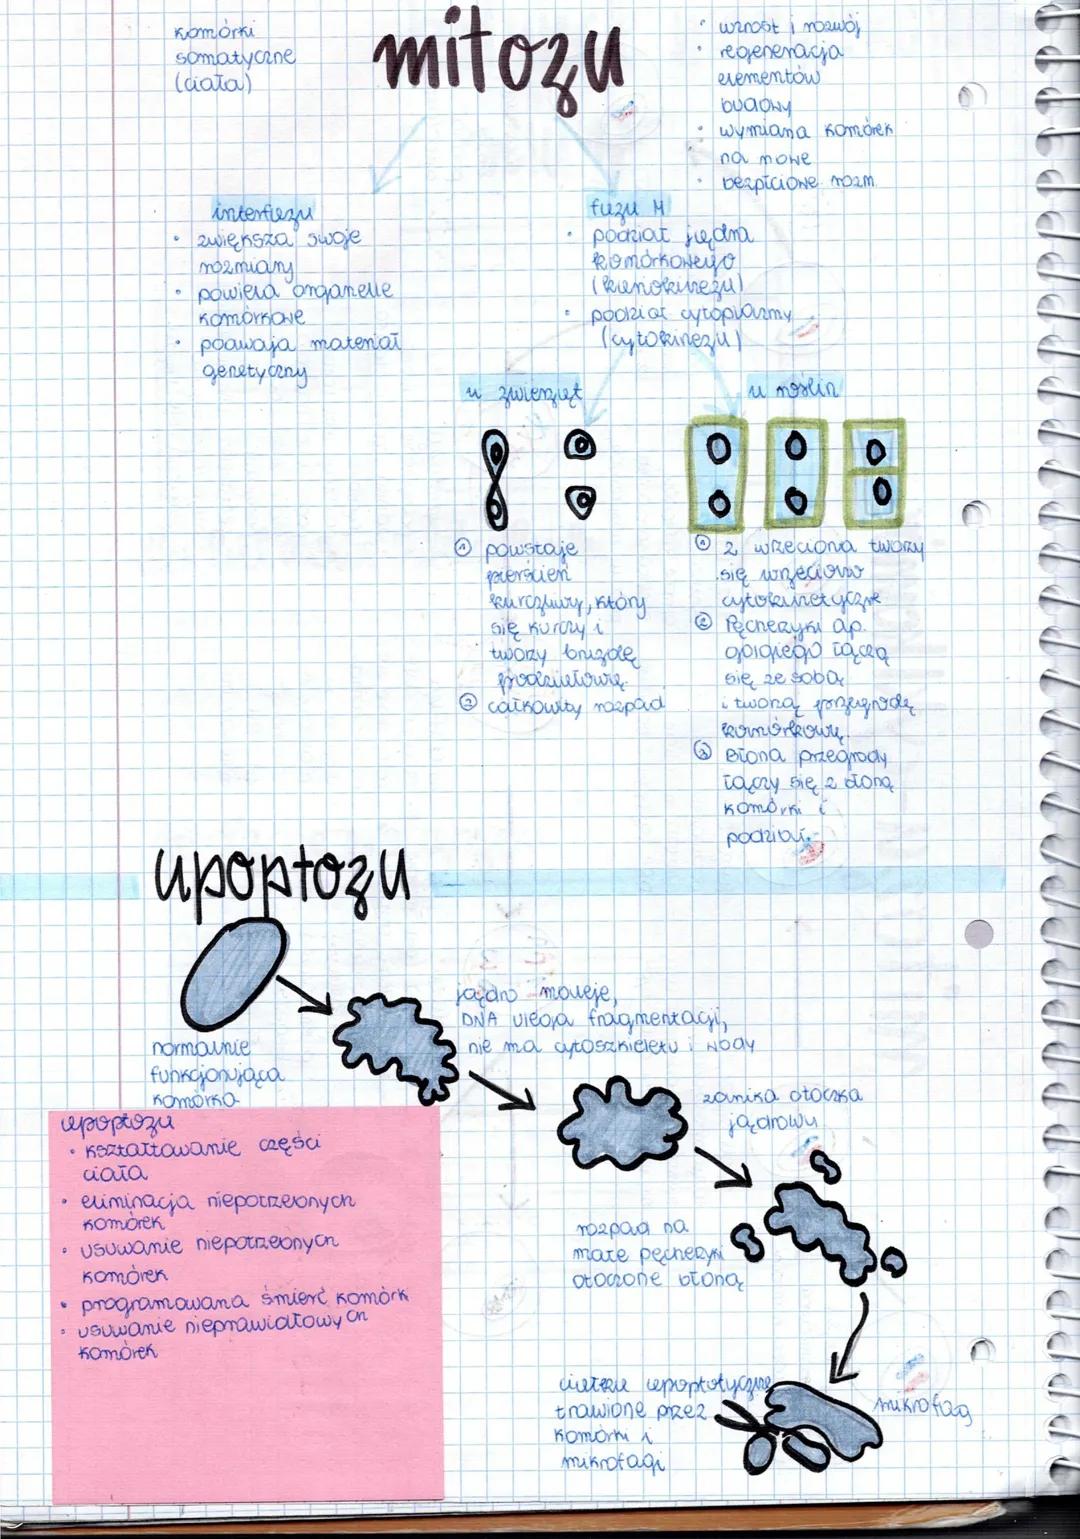 komórki
somatyczne
(ciała)
mitoza
• wzrost i rozwój
• regeneracja
elementów
budowy
• wymiana komórek
na nowe
• bezpłciowe rozm.
interfaza
• zwiększa swoje
rozmiary
• powiela organelle
komórkowe
• podwaja materiał
genetyczny
faza M
• podział jądra
komórkowego
(kariokineza)
• podział cytoplazmy
(cytokineza)
u zwierząt
① powstaje
pierścień
kurczliwy, który
się kurczy i
tworzy bruzdę
podziałową.
② całkowity rozpad
u roślin
① z wrzeciona tworzy
się wrzeciono
cytokinetyczne
② Pęcherzyki ap.
golgiego łączą
się ze sobą
i tworzą przegrodę
komórkową.
③ Błona przegrody
łączy się z błoną
komórki i
podział.
apoptoza
normalnie
funkcjonująca
komórka
jądro maleje,
DNA ulega fragmentacji,
nie ma cytoszkieletu i wody
zanika otoczka
jądrowa
rozpad na
małe pęcherzyki
otoczone błoną
ciałka apoptotyczne
trawione przez
komórki i
makrofagi
makrofag
apoptoza
• kształtowanie części
ciała
• eliminacja niepotrzebnych
komórek
• usuwanie niepotrzebnych
komórek
• programowana śmierć komórki
• usuwanie nieprawidłowych
komórek